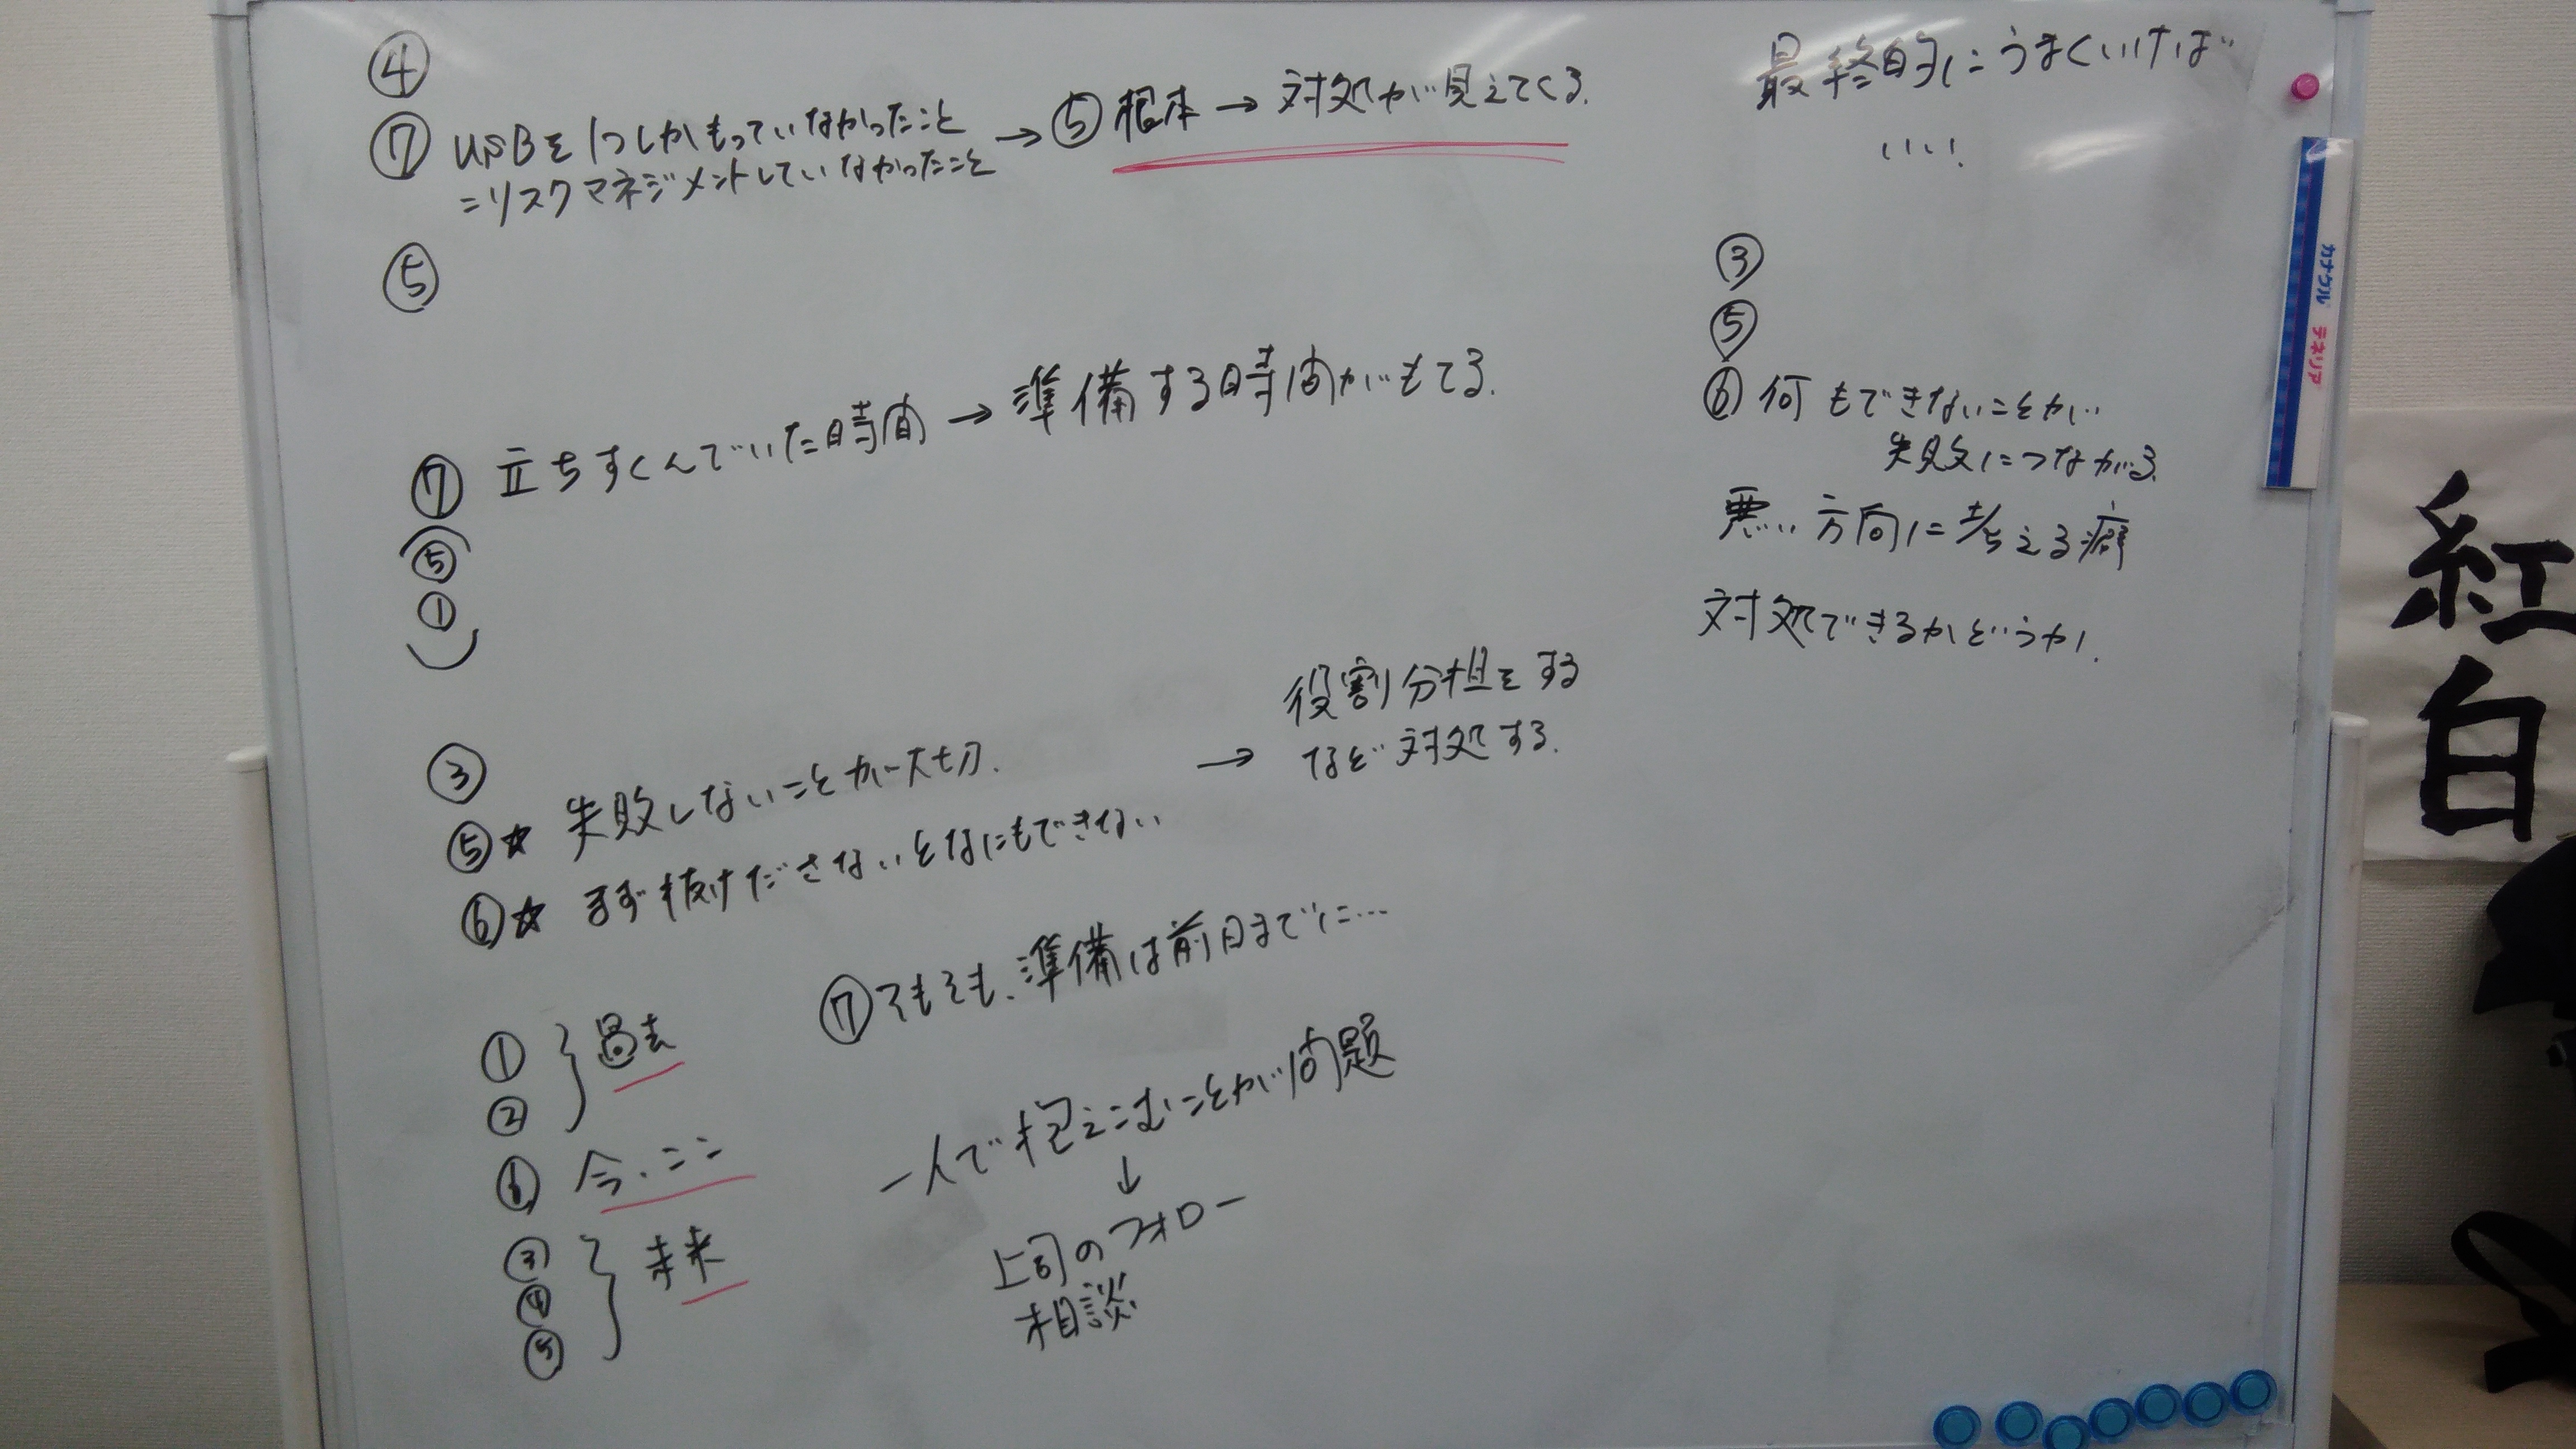 ④
⑦ USBを1つしかもっていなかったこと
=リスクマネジメントしていなかったこと
→ ⑤ 根本 → 対処が見えてくる.
⑤
⑦ 立ちすくんでいた時間 → 準備する時間がもてる.
(⑤
①)
③
⑤★ 失敗しないことが大切.
⑥☆ まず抜けださないとなにもできない
→ 役割分担をする
など対処する.
⑦そもそも、準備は前日までに…
①
②
} 過去
⑥ 今、ここ
③
④
⑤
} 未来
一人で抱えこむことが問題
↓
上司のフォロー
相談
最終的にうまくいけば
いい!
③
⑤
⑥ 何もできないことが
失敗につながる.
悪い方向に考える癖
対処できるかどうか.
カナグル テネリア
紅
白